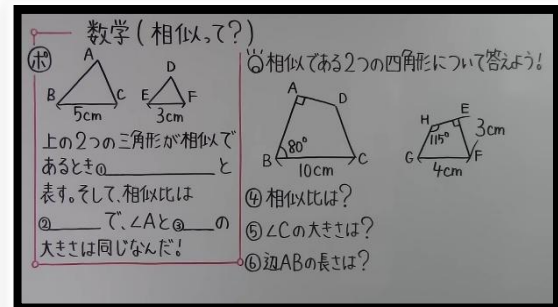 数学(相似って?)
ポ
A
B
C
5cm
D
E
F
3cm
上の2つの三角形が相似で
あるとき①と
表す。そして、相似比は
②で、∠Aと③の
大きさは同じなんだ!
相似である2つの四角形について答えよう!
A
D
B
80°
C
10cm
H
E
115°
3cm
G
F
4cm
④相似比は?
⑤∠Cの大きさは?
⑥辺ABの長さは?